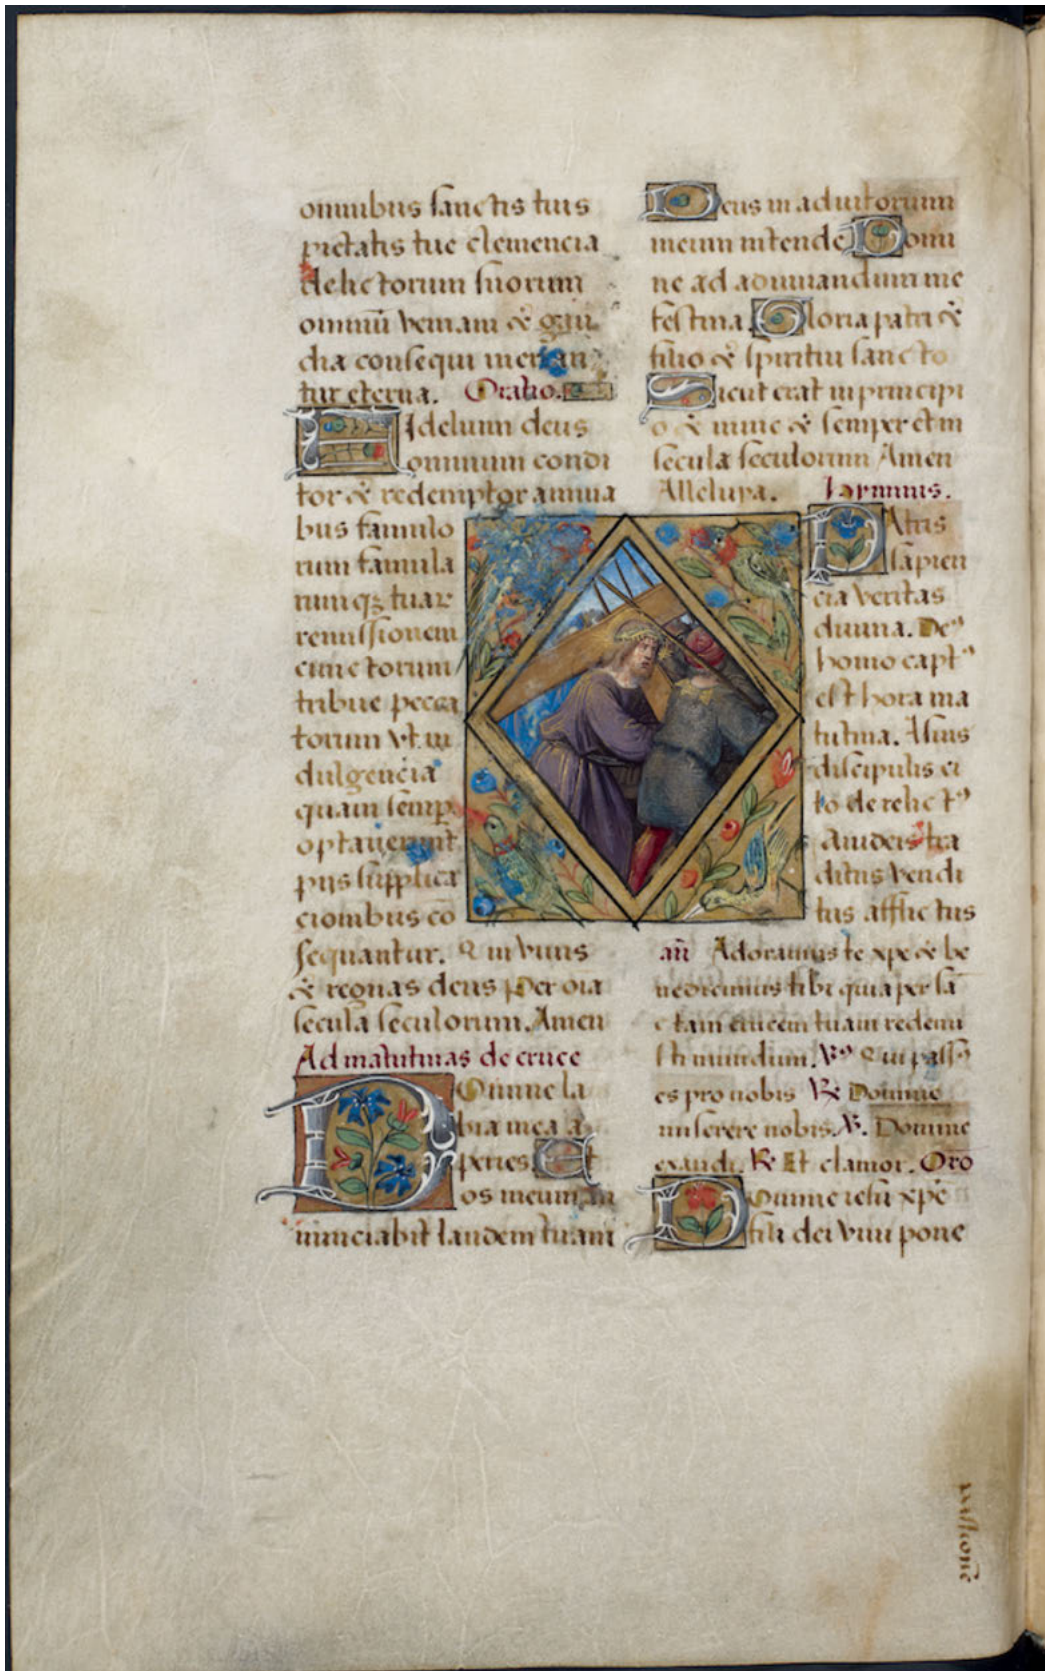 omnibus sanctis tuis
pietatis tue clemencia
delictorum suorum
omniũ veniam & gau
dia consequi merean
tur eterna. Oratio.
Fidelium deus
omnium condi
tor & redemptor anima
bus famulo
rum famula
rumqꝫ tuar
remissionem
cunctorum
tribue pecca
torum vt in
dulgencia
quam semp̲
optauerunt
pijs supplica
cionibus cõ
sequantur. Qui viuis
& regnas deus Per oia
secula seculorum. Amen
Ad matutinas de cruce
Domine la
bia mea a
peries. Et
os meum an
nunciabit laudem tuam
Deus in adiutorium
meum intende Domi
ne ad adiuuandum me
festina Gloria patri &
filio & spiritui sancto
Sicut erat in principi
o & nunc & semper et in
secula seculorum Amen
Alleluya. Hymnus.
Patris
sapien
cia veritas
diuina. Deꝰ
homo captꝰ
est hora ma
tutina. A suis
discipulis ci
to derelictꝰ
A iudeis tra
ditus vendi
tus afflictus
añ Adoramus te xpe & be
nedicimus tibi quia per sã
ctam crucem tuam redemi
sti mundum. Qui passꝰ
es pro nobis ℟ Domine
miserere nobis. ℣. Domine
exaudi. ℟ Et clamor. Orõ
Domine iesu xpẽ
fili dei viui pone